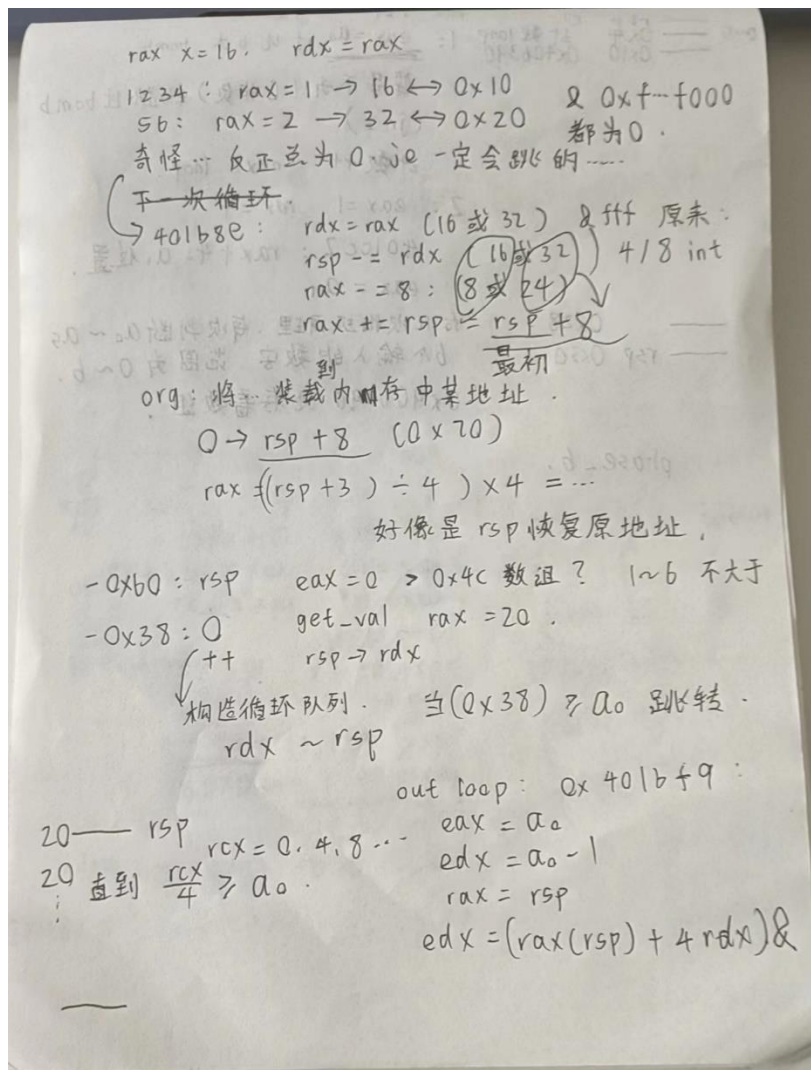 rax x=16. rdx = rax
1234: rax=1 → 16 ↔ 0x10 & 0xf…f000
56: rax=2 → 32 ↔ 0x20 都为0.
奇怪… 反正总为0. je 一定会跳的……
下一次循环.
401b8e: rdx=rax (16或32) &fff 原来:
rsp -= rdx (16或32) 4/8 int
rax -= 8: (8或24)
rax += rsp = rsp + 8
最初
org: 将… 装载到内存中某地址.
0 → rsp + 8 (0x20)
rax =((rsp+3) ÷ 4) × 4 = …
好像是 rsp 恢复原地址,
-0x60: rsp eax = 0 > 0x4c 数组? 1~6 不大于
-0x38: 0 get_val rax = 20.
++ rsp → rdx
构造循环队列. 当(0x38) ≥ a0 跳转.
rdx ~ rsp
out loop: 0x401bf9:
20 —— rsp rcx = 0. 4. 8 … eax = a0
20 直到 rcx/4 ≥ a0. edx = a0 - 1
⋮ rax = rsp
edx = (rax(rsp) + 4rdx)&